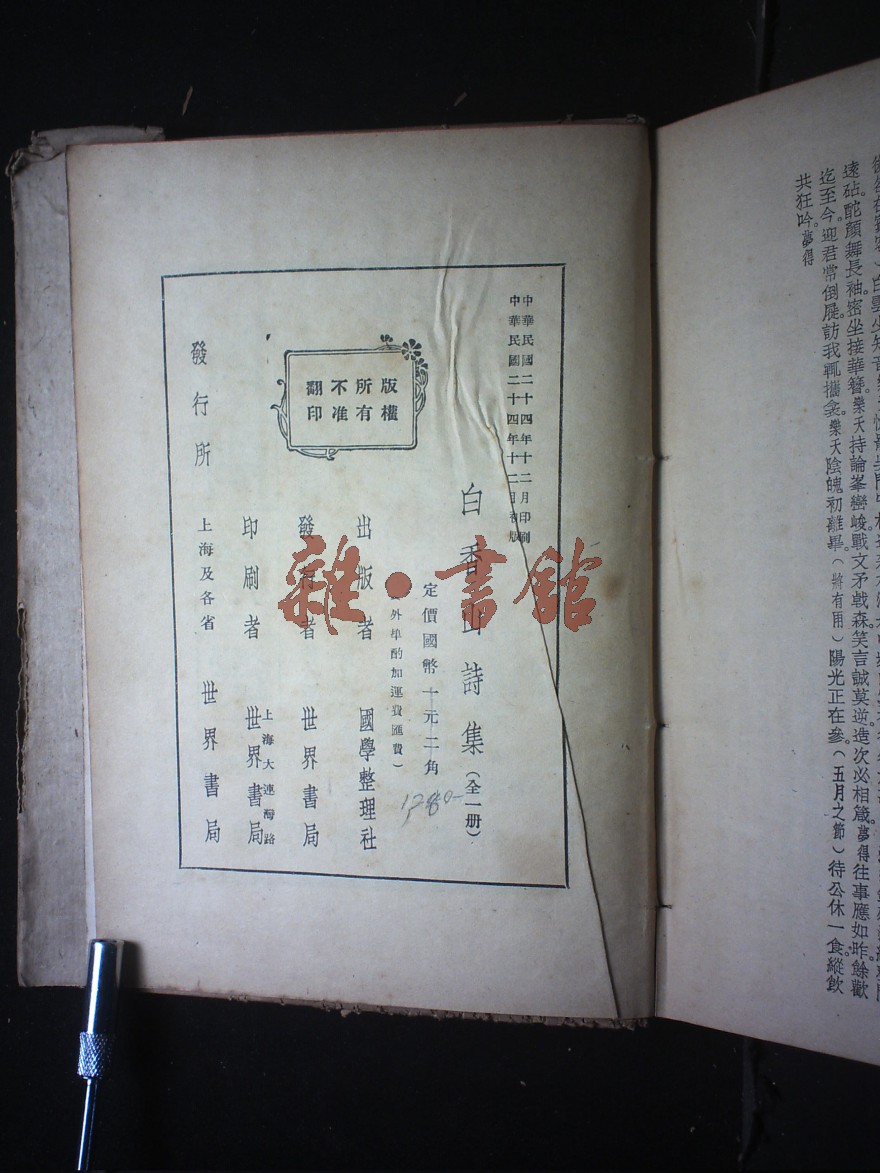 遠砧。酡顏舞長袖密坐接華簪。樂天持論峯巒峻。戰文矛戟森笑言誠莫逆。造次必相箴。夢得往事應如昨。餘歡
迄至今。迎君常倒屣。訪我輒攜衾。樂天陰魄初離畢。（將有雨）陽光正在參。（五月之節）待公休一食。縱飲
共狂吟。夢得
中華民國二十四年十二月印刷
中華民國二十四年十二月初版
白香山詩集（全一册）
定價國幣十元二角
外埠酌加運費匯費）
1280-
出版者 國學整理社
發行者 世界書局
印刷者 上海大連灣路 世界書局
發行所 上海及各省 世界書局
版權
所有
不准
翻印
雜·書館